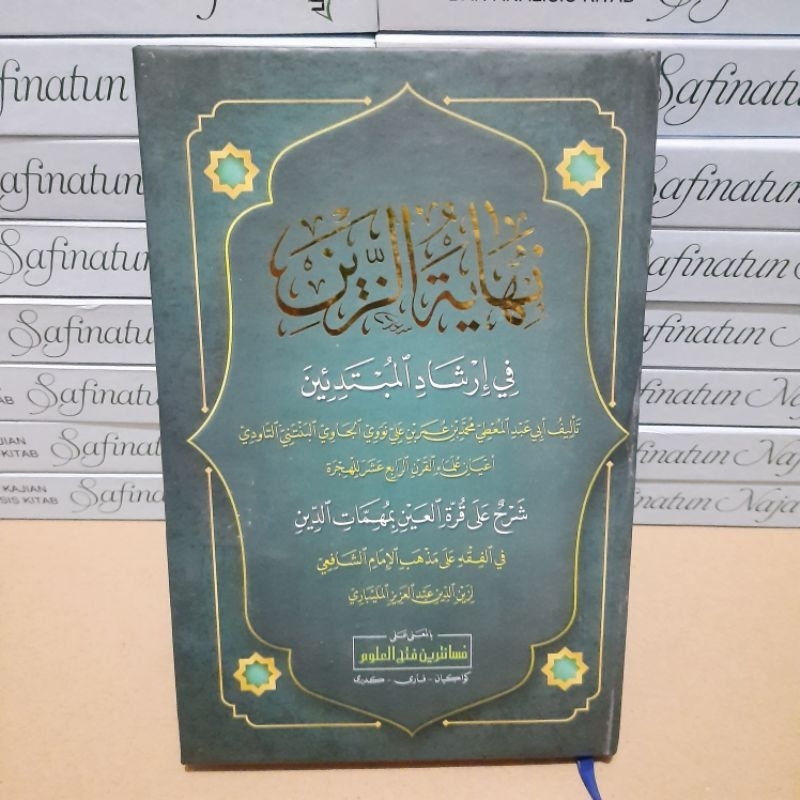 نِهَايَةُ الزَّيْنِ
فِي إِرْشَادِ الْمُبْتَدِئِينَ
تَأْلِيفُ أَبِي عَبْدِ الْمُعْطِيْ مُحَمَّدِ بْنِ عُمَرَ بْنِ عَلِيْ نَوَوِيْ الْجَاوِيْ الْبَنْتَنِيْ التَّاوِدِيْ
أَعْيَانِ عُلَمَاءِ الْقَرْنِ الرَّابِعِ عَشَرَ لِلْهِجْرَة
شَرْحٌ عَلَى قُرَّةِ الْعَيْنِ بِمُهِمَّاتِ الدِّينِ
فِي الْفِقْهِ عَلَى مَذْهَبِ الْإِمَامِ الشَّافِعِيْ
لِزَيْنِ الدِّيْنِ عَبْدِ الْعَزِيْزِ الْمَلِيْبَارِيْ
بالمعنى على
فسانترين فتح العلوم
كراكيان - فارى - كديرى
finatun
Safinatun
Safinatun
Safinatun
Safinatun
Safinatun
Safinatun
KAJIAN
Safinatun
DAN ANALISIS KITAB
Safinatu
Safinatun
Safinatun
Safinatun
Safinatun
finatun Naja
finatun Naja
inatun Naja